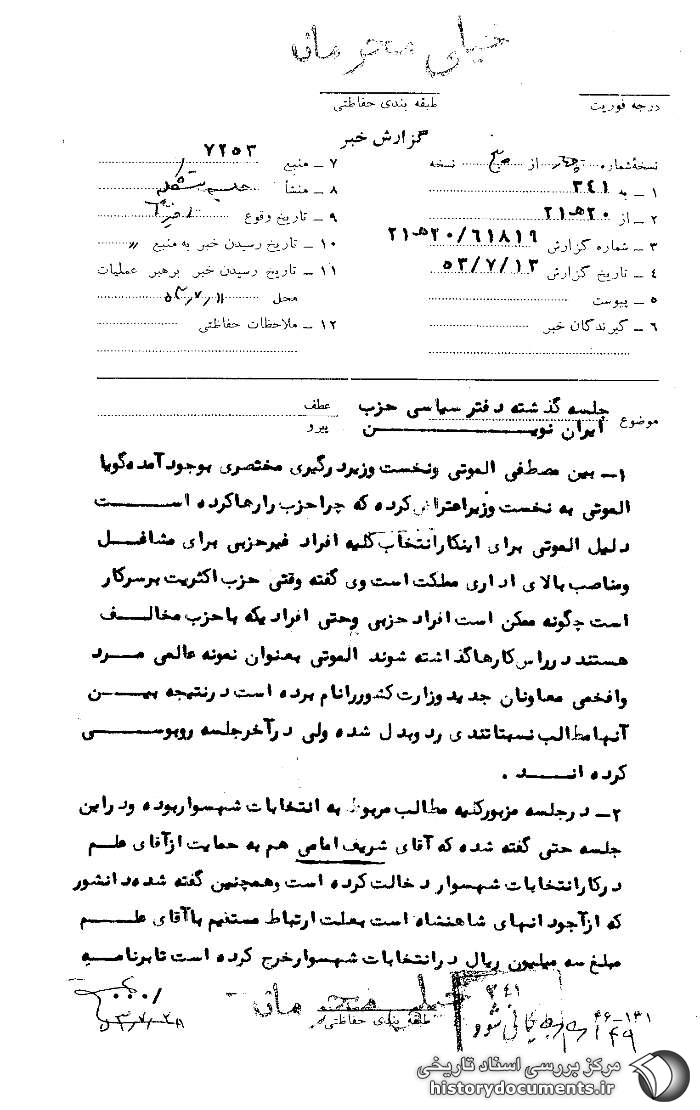 خیلی محرمانه
درجه فوریت
طبقه بندی حفاظتی
گزارش خبر
نسخهٔ شماره از نسخه
۱ ـ به ۳۴۱
۲ ـ از ۲۰ه‍۲۱
۳ ـ شماره گزارش ۶۱۸۱۹/۲۰ه‍۲۱
۴ ـ تاریخ گزارش ۵۳/۷/۱۳
۵ ـ پیوست
۶ ـ گیرندگان خبر
۷ ـ منبع ۷۲۵۳
۸ ـ منشأ
۹ ـ تاریخ وقوع
۱۰ ـ تاریخ رسیدن خبر به منبع "
۱۱ ـ تاریخ رسیدن خبر برهبر عملیات
محل ۵۳/۷/۱۱
۱۲ ـ ملاحظات حفاظتی
موضوع جلسه گذشته دفتر سیاسی حزب
ایران نویـــن
عطف
پیرو
۱ـ بین مصطفی الموتی ونخست وزیردرگیری مختصری بوجود آمده گویا
الموتی به نخست وزیراعتراض کرده که چراحزب رارهاکرده اســـت
دلیل الموتی برای اینکارانتخاب کلیه افراد غیرحزبی برای مشاغـــل
ومناصب بالای اداری مملکت است وی گفته وقتی حزب اکثریت برسرکار
است چگونه ممکن است افراد حزبی وحتی افرادیکه باحزب مخالـــف
هستند درراس کارهاگذاشته شوند الموتی بعنوان نمونه عالمی مـــرد
وافخمی معاونان جدید وزارت کشوررانام برده است درنتیجه بیـــن
آنهامطالب نسبتاتندی ردوبدل شده ولی درآخرجلسه روبوســـی
کرده انـــد .
۲ـ درجلسه مزبورکلیه مطالب مربوط به انتخابات شهسواربوده ودراین
جلسه حتی گفته شده که آقای شریف امامی هم به حمایت ازآقای علم
درکارانتخابات شهسوار دخالت کرده است وهمچنین گفته شده دانشور
که ازآجودانهای شاهنشاه است بعلت ارتباط مستقیم باآقای علـــم
مبلغ سه میلیون ریال درانتخابات شهسوارخرج کرده است تابرنامـه
خیلی محرمانه
طبقه بندی حفاظتی
۳۴۱
۴۶-۱۳۱
۵۳/۷/۲۸
مرکز بررسی اسناد تاریخی
historydocuments.ir